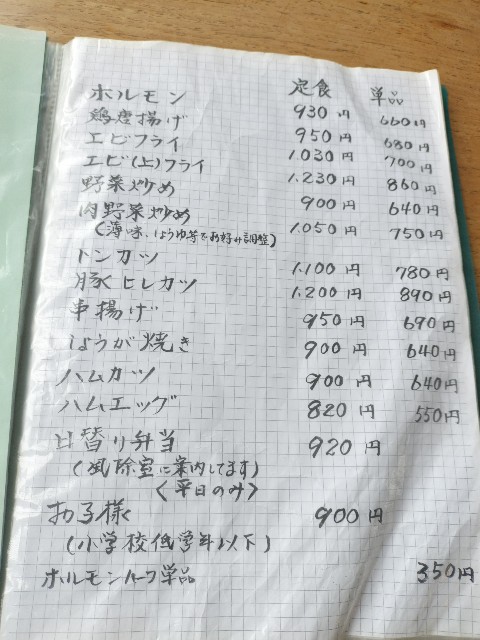 定食 単品
ホルモン 930円 660円
鶏唐揚げ 950円 680円
エビフライ 1.030円 700円
エビ(上)フライ 1.230円 860円
野菜炒め 900円 640円
肉野菜炒め 1.050円 750円
(薄味、しょうゆ等でお好み調整)
トンカツ 1.100円 780円
豚ヒレカツ 1.200円 890円
串揚げ 950円 690円
しょうが焼き 900円 640円
ハムカツ 900円 640円
ハムエッグ 820円 550円
日替り弁当 920円
(風除室に案内してます)
<平日のみ>
お子様 900円
(小学校低学年以下)
ホルモンハーフ単品 350円